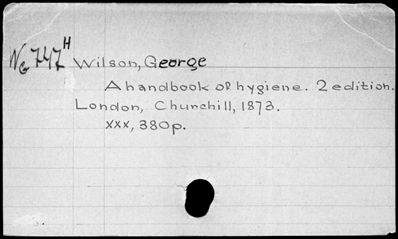 WG 747 H Wilson, George
A handbook of hygiene. 2 edition.
London, Churchill, 1873.
xxx, 380p.